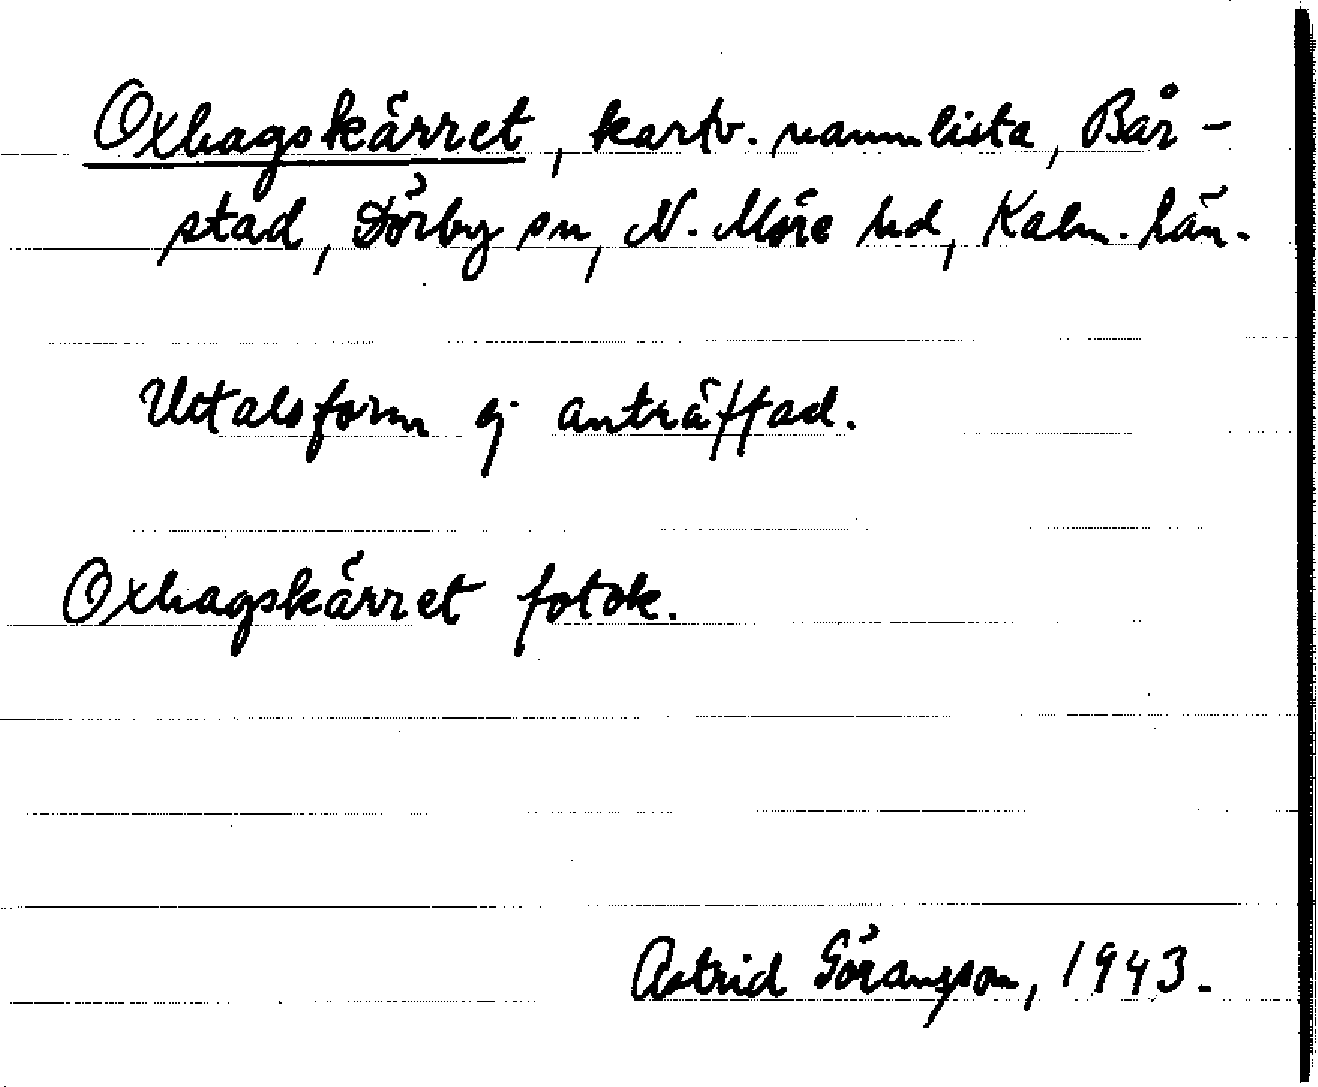 Oxhagskärret, kartv. namnlista, Bår-
stad, Dörby sn, N. Möre hd, Kalm. län.
Uttalsform ej anträffad.
Oxhagskärret fotok.
Astrid Göransson, 1943.